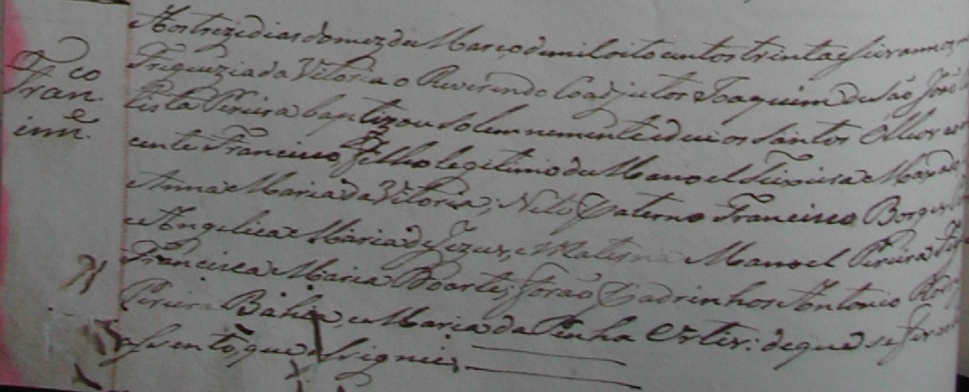 Fran.co
inn.e
Aos treze dias do mez de Março de mil oito centos trinta e seis annos, n
Freguezia da Vitoria o Reverendo Coadjutor Joaquim de São José
tista Pereira baptizou solemnemente e deu os Santos Oleos
cente Francisco filho legitimo de Manoel Teixeira Maxado
e Anna Maria da Vitoria; Neto Paterno Francisco Borges
e Angelica Maria de Jezus, e Materno Manoel Pereira
Francisca Maria Boarte; forão Padrinhos Antonio Rodri
Pereira Bahia, e Maria da Penha Ester: de que se fes
assento, que assignei.